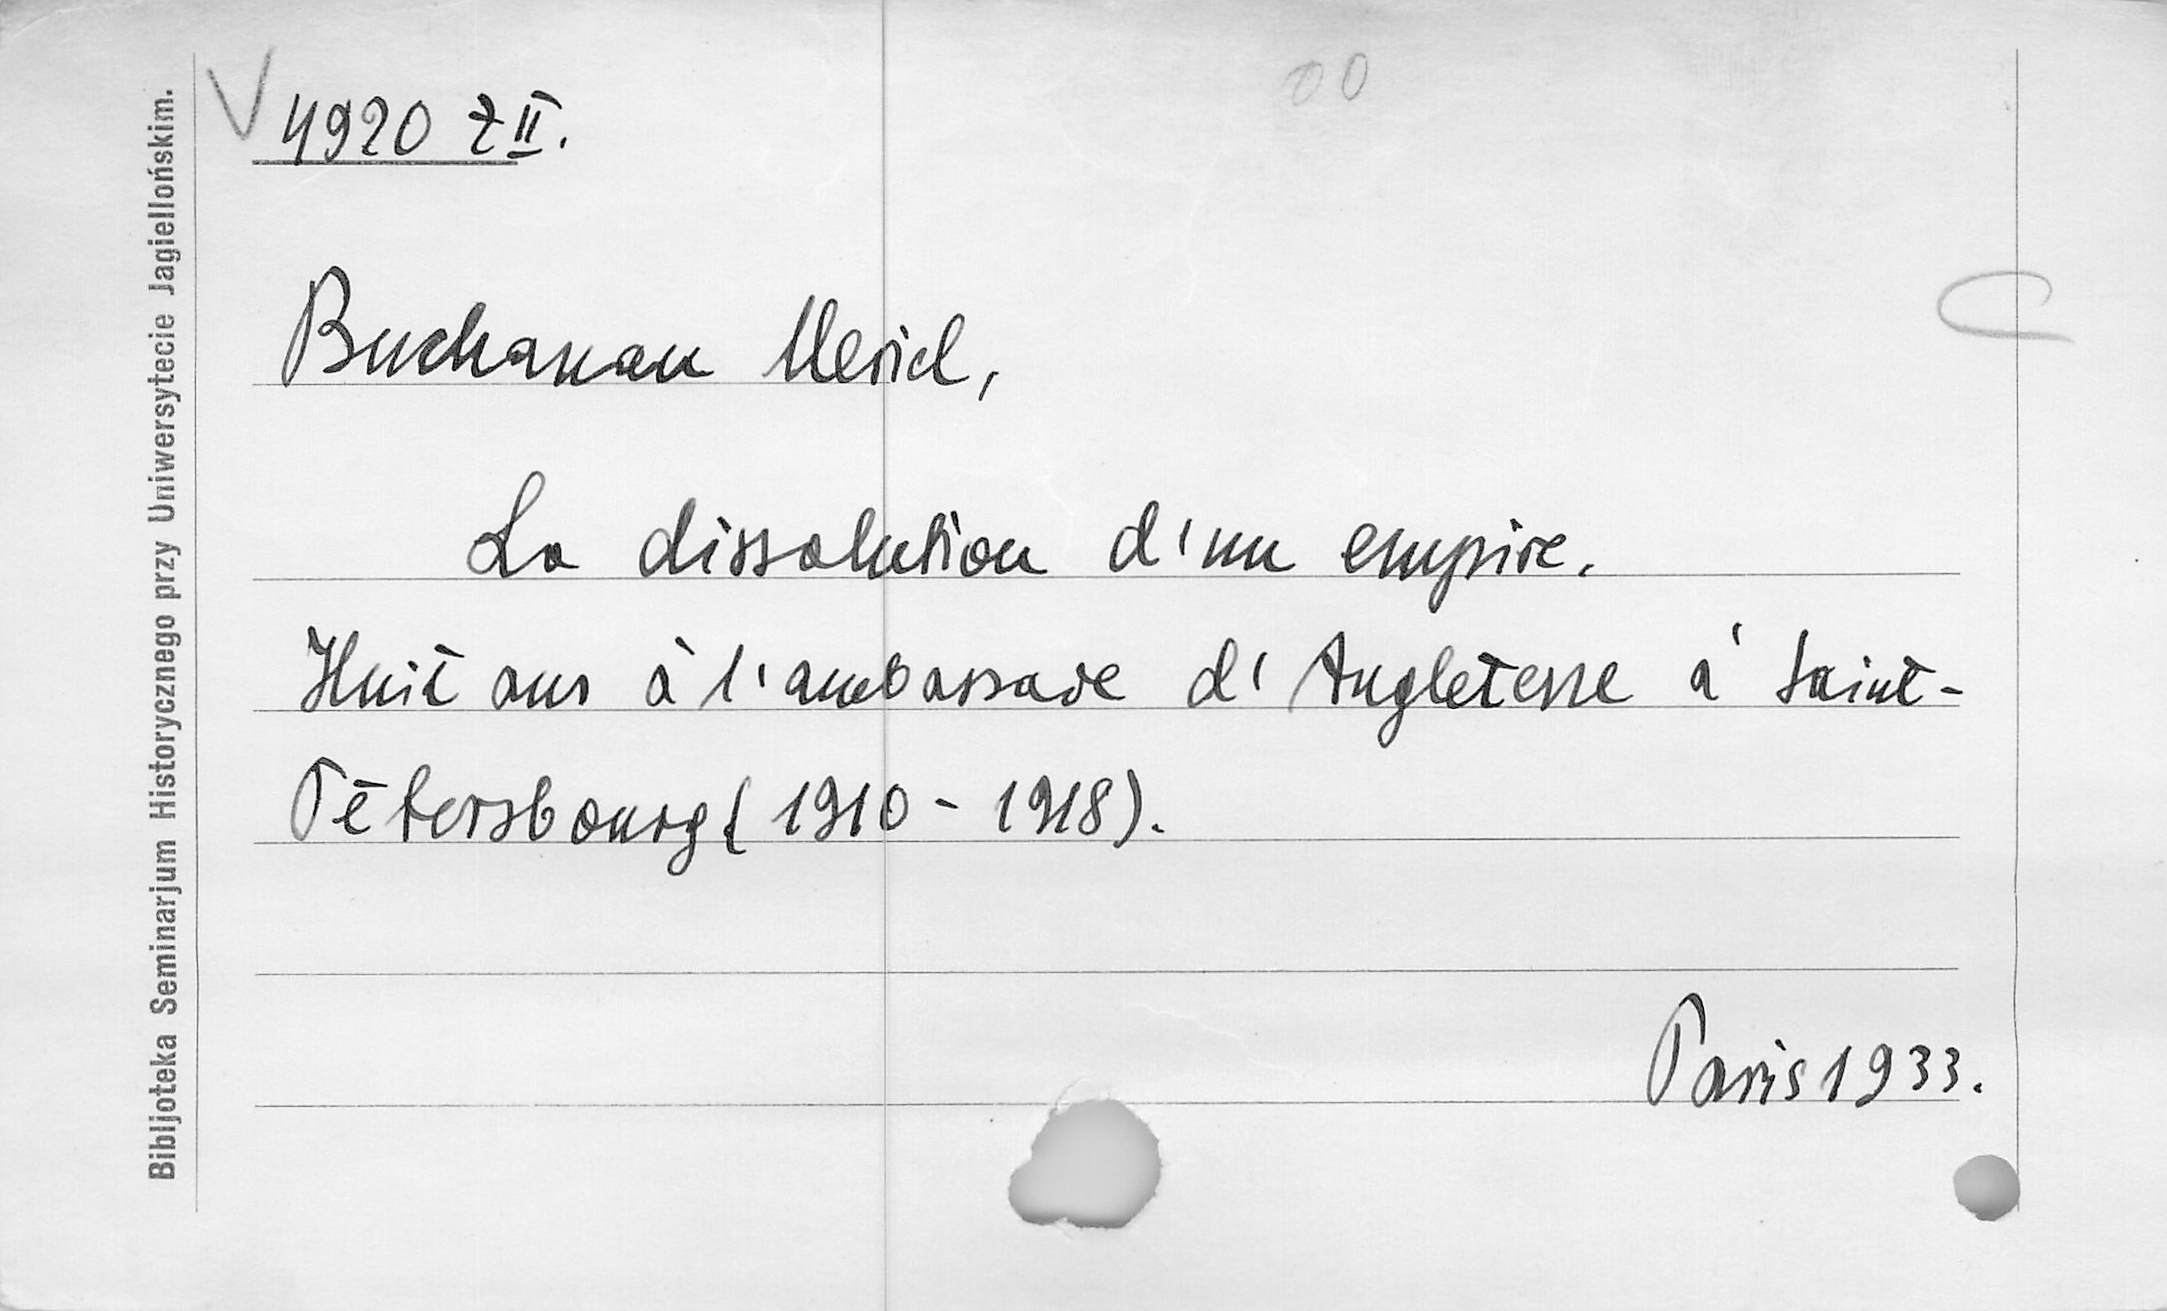 V 4920 z II.
00
Buchanan Meriel,
La dissolution d'un empire.
Huit ans à l'ambassade d'Angleterre à Saint-
Pétersbourg (1910 - 1918).
Paris 1933.
Bibljoteka Seminarjum Historycznego przy Uniwersytecie Jagiellońskim.